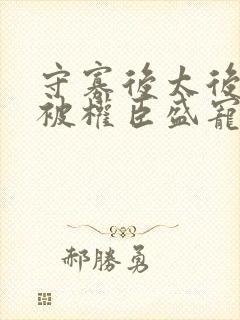 守寡後太後
被權臣盛寵
郝勝勇